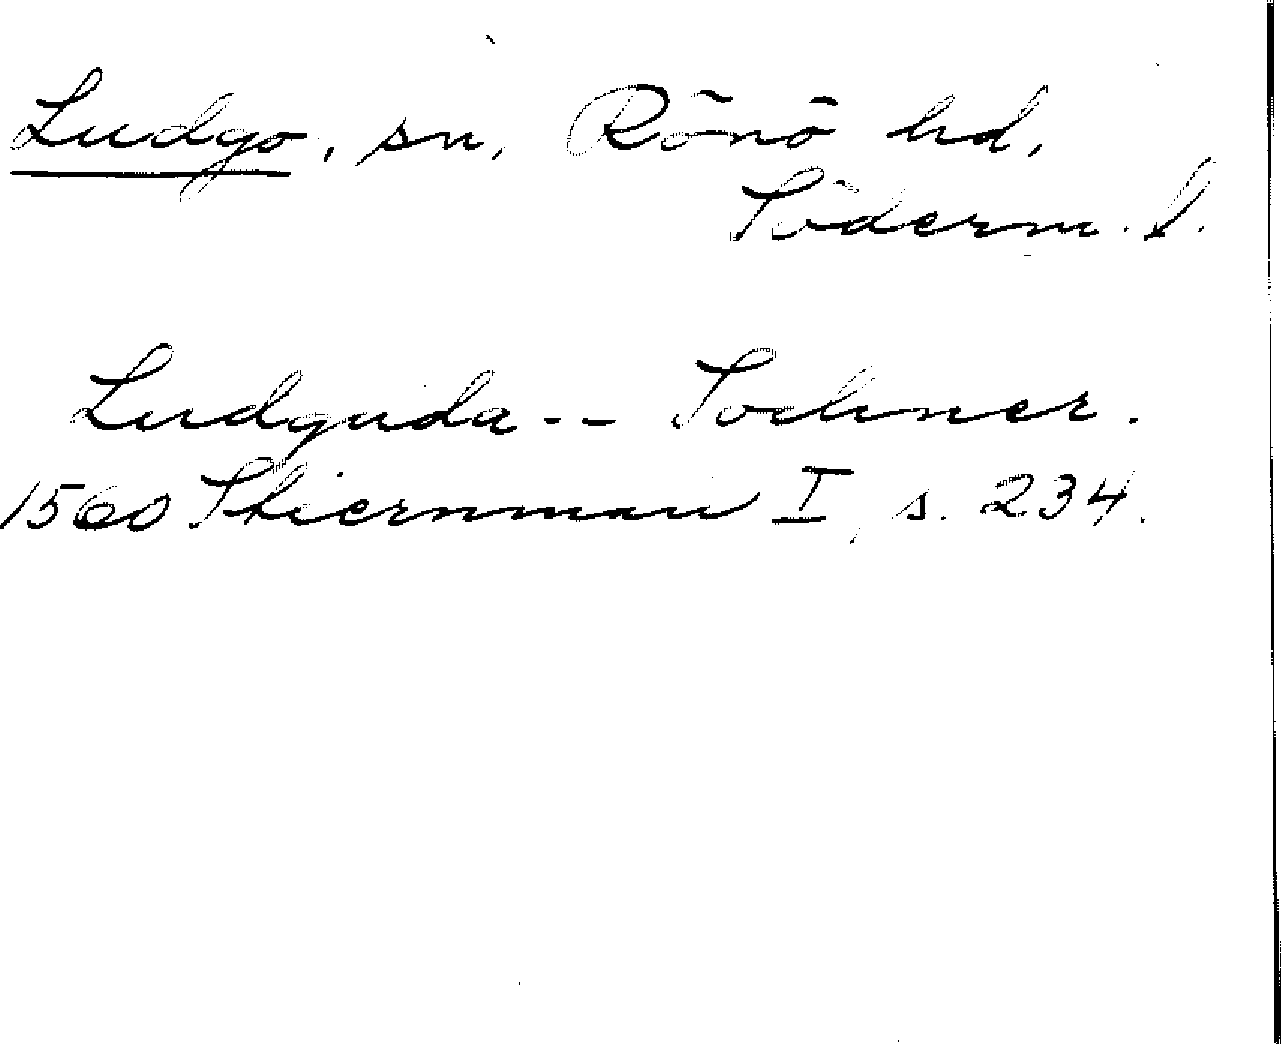 Ludgo, sn, Rönö hd,
Söderm. l.
Ludguda -- Sochner.
1560 Stiernman I, s. 234.